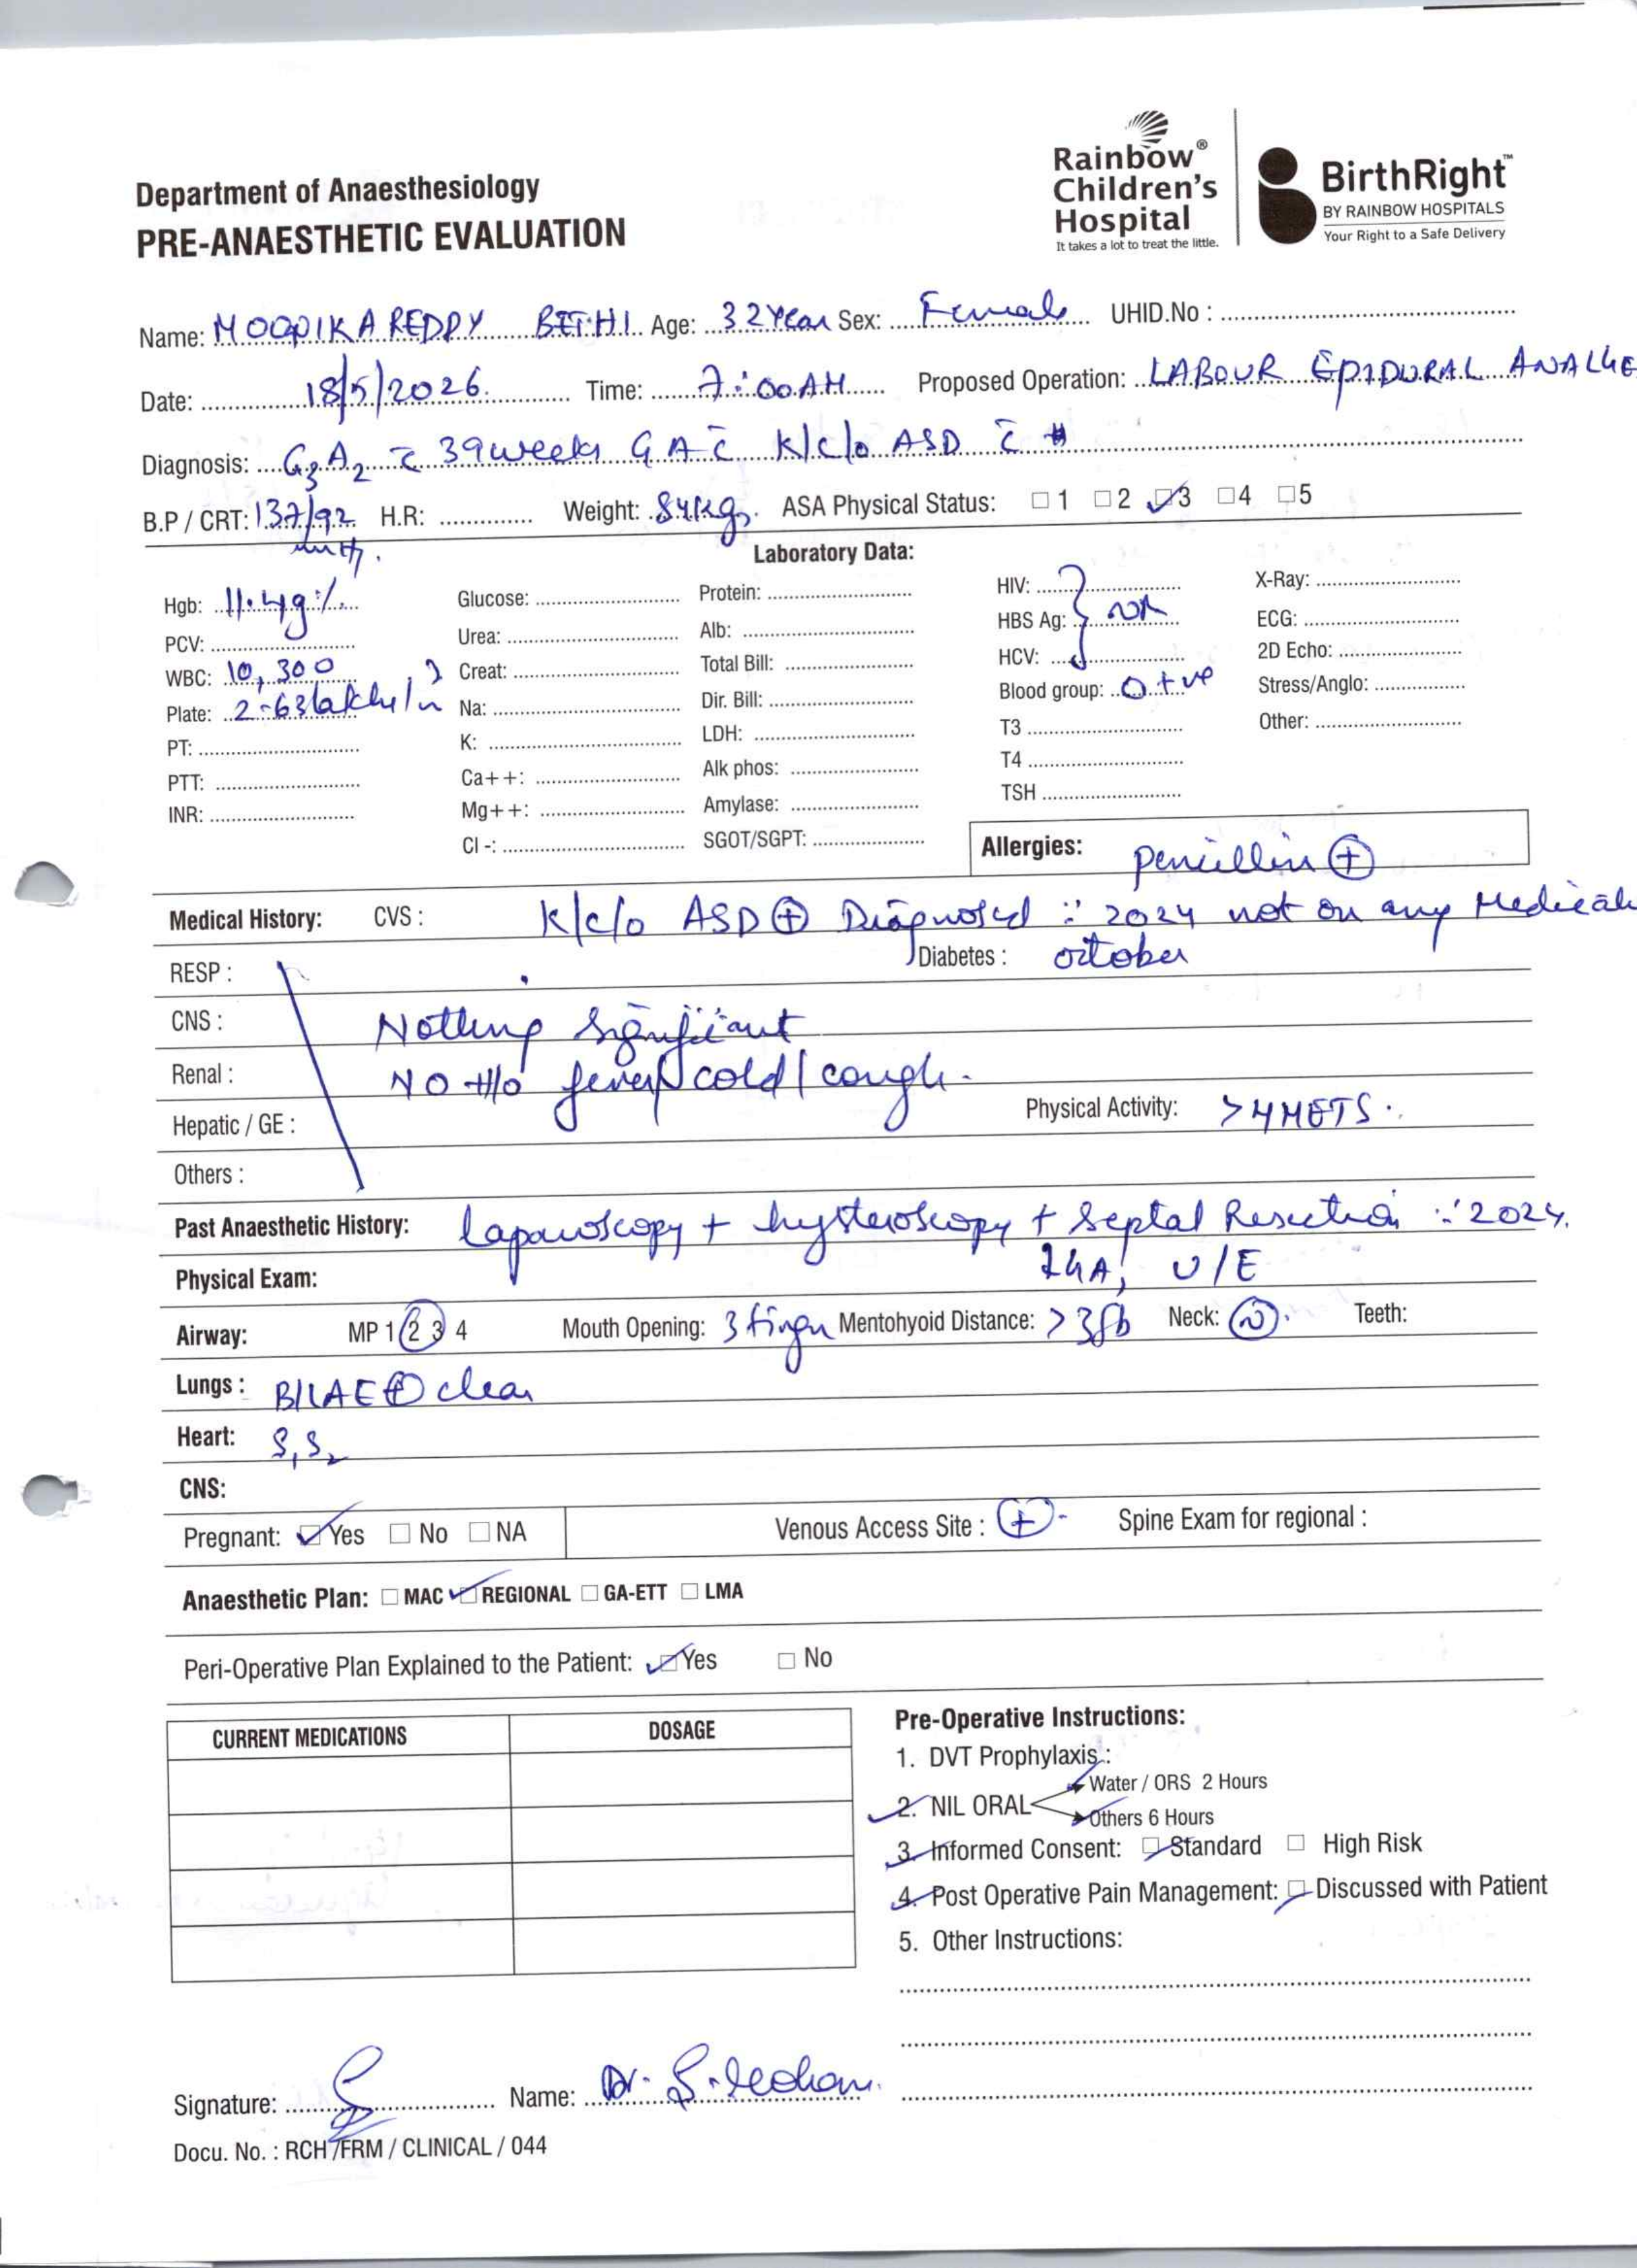 Rainbow®
Children's
Hospital
It takes a lot to treat the little.
BirthRight™
BY RAINBOW HOSPITALS
Your Right to a Safe Delivery
Department of Anaesthesiology
PRE-ANAESTHETIC EVALUATION
Name: MOOPIKA REDDY BETHI Age: 32 Year Sex: Female UHID.No :
Date: 18/5/2026 Time: 7:00AM Proposed Operation: LABOUR EPIDURAL ANALGE
Diagnosis: G3A2 c̄ 39 weeks GA c̄ K/c/o ASD c̄
B.P / CRT: 137/92 H.R: Weight: 84kgs. ASA Physical Status: ☐ 1 ☐ 2 ☑ 3 ☐ 4 ☐ 5
Laboratory Data:
Hgb: 11.4g% Glucose: Protein: HIV: X-Ray:
PCV: Urea: Alb: HBS Ag: NR ECG:
WBC: 10,300 Creat: Total Bill: HCV: 2D Echo:
Plate: 2.63 lakhs/ Na: Dir. Bill: Blood group: O+ve Stress/Anglo:
PT: K: LDH: T3 Other:
PTT: Ca++: Alk phos: T4
INR: Mg++: Amylase: TSH
Cl -: SGOT/SGPT: Allergies: penicillin ⊕
Medical History: CVS : K/c/o ASD ⊕ Diagnosed : 2024 not on any Medicat
RESP : Diabetes : october
CNS : Nothing significant
Renal : NO H/o fever/cold/cough.
Hepatic / GE : Physical Activity: >4METS.
Others :
Past Anaesthetic History: laparoscopy + hysteroscopy + Septal Resection : 2024.
Physical Exam: U/E
Airway: MP 1 2 3 4 Mouth Opening: 3 finger Mentohyoid Distance: >3fb Neck: N Teeth:
Lungs : B/LAE ⊕ clear
Heart: S1S2
CNS:
Pregnant: ☑ Yes ☐ No ☐ NA Venous Access Site : ⊕ Spine Exam for regional :
Anaesthetic Plan: ☐ MAC ☑ REGIONAL ☐ GA-ETT ☐ LMA
Peri-Operative Plan Explained to the Patient: ☑ Yes ☐ No
CURRENT MEDICATIONS DOSAGE
Pre-Operative Instructions:
1. DVT Prophylaxis :
2. NIL ORAL Water / ORS 2 Hours
Others 6 Hours
3. Informed Consent: ☑ Standard ☐ High Risk
4. Post Operative Pain Management: ☑ Discussed with Patient
5. Other Instructions:
Signature: Name: Dr.
Docu. No. : RCH /FRM / CLINICAL / 044